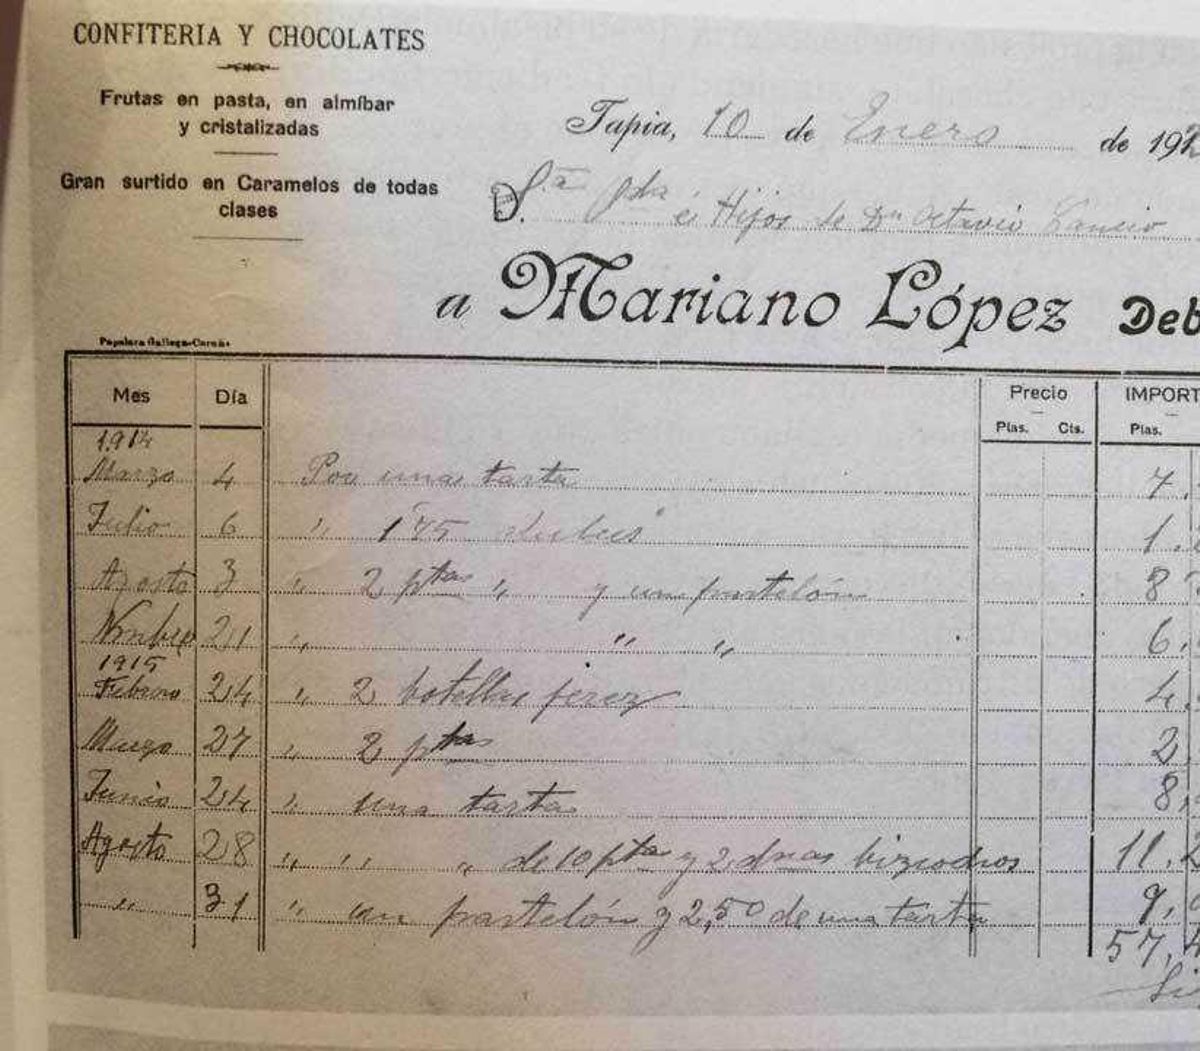 CONFITERIA Y CHOCOLATES
Frutas en pasta, en almíbar
y cristalizadas
Gran surtido en Caramelos de todas
clases
Tapia, 10 de Enero de 191
D. é Hijos de Dn Octavio
a Mariano López Deb
Papelera Gallega-Coruña
Mes Día Precio IMPORT
Ptas. Cts. Ptas.
1914
Marzo 4 Por una tarta 7.
Julio 6 " 1'75 1.
Agosto 3 " 2 ptas " y un pastelón 8
Nvmbre 21 " " " 6.
1915
Febrero 24 " 2 botellas jerez 4.
Marzo 27 " 2 ptas 2.
Junio 24 " una tarta 8,
Agosto 28 " " " de 10 pta y 2 dnas bizcochos 11.
" 31 " un pastelón y 2,50 de una tarta 9,
57,